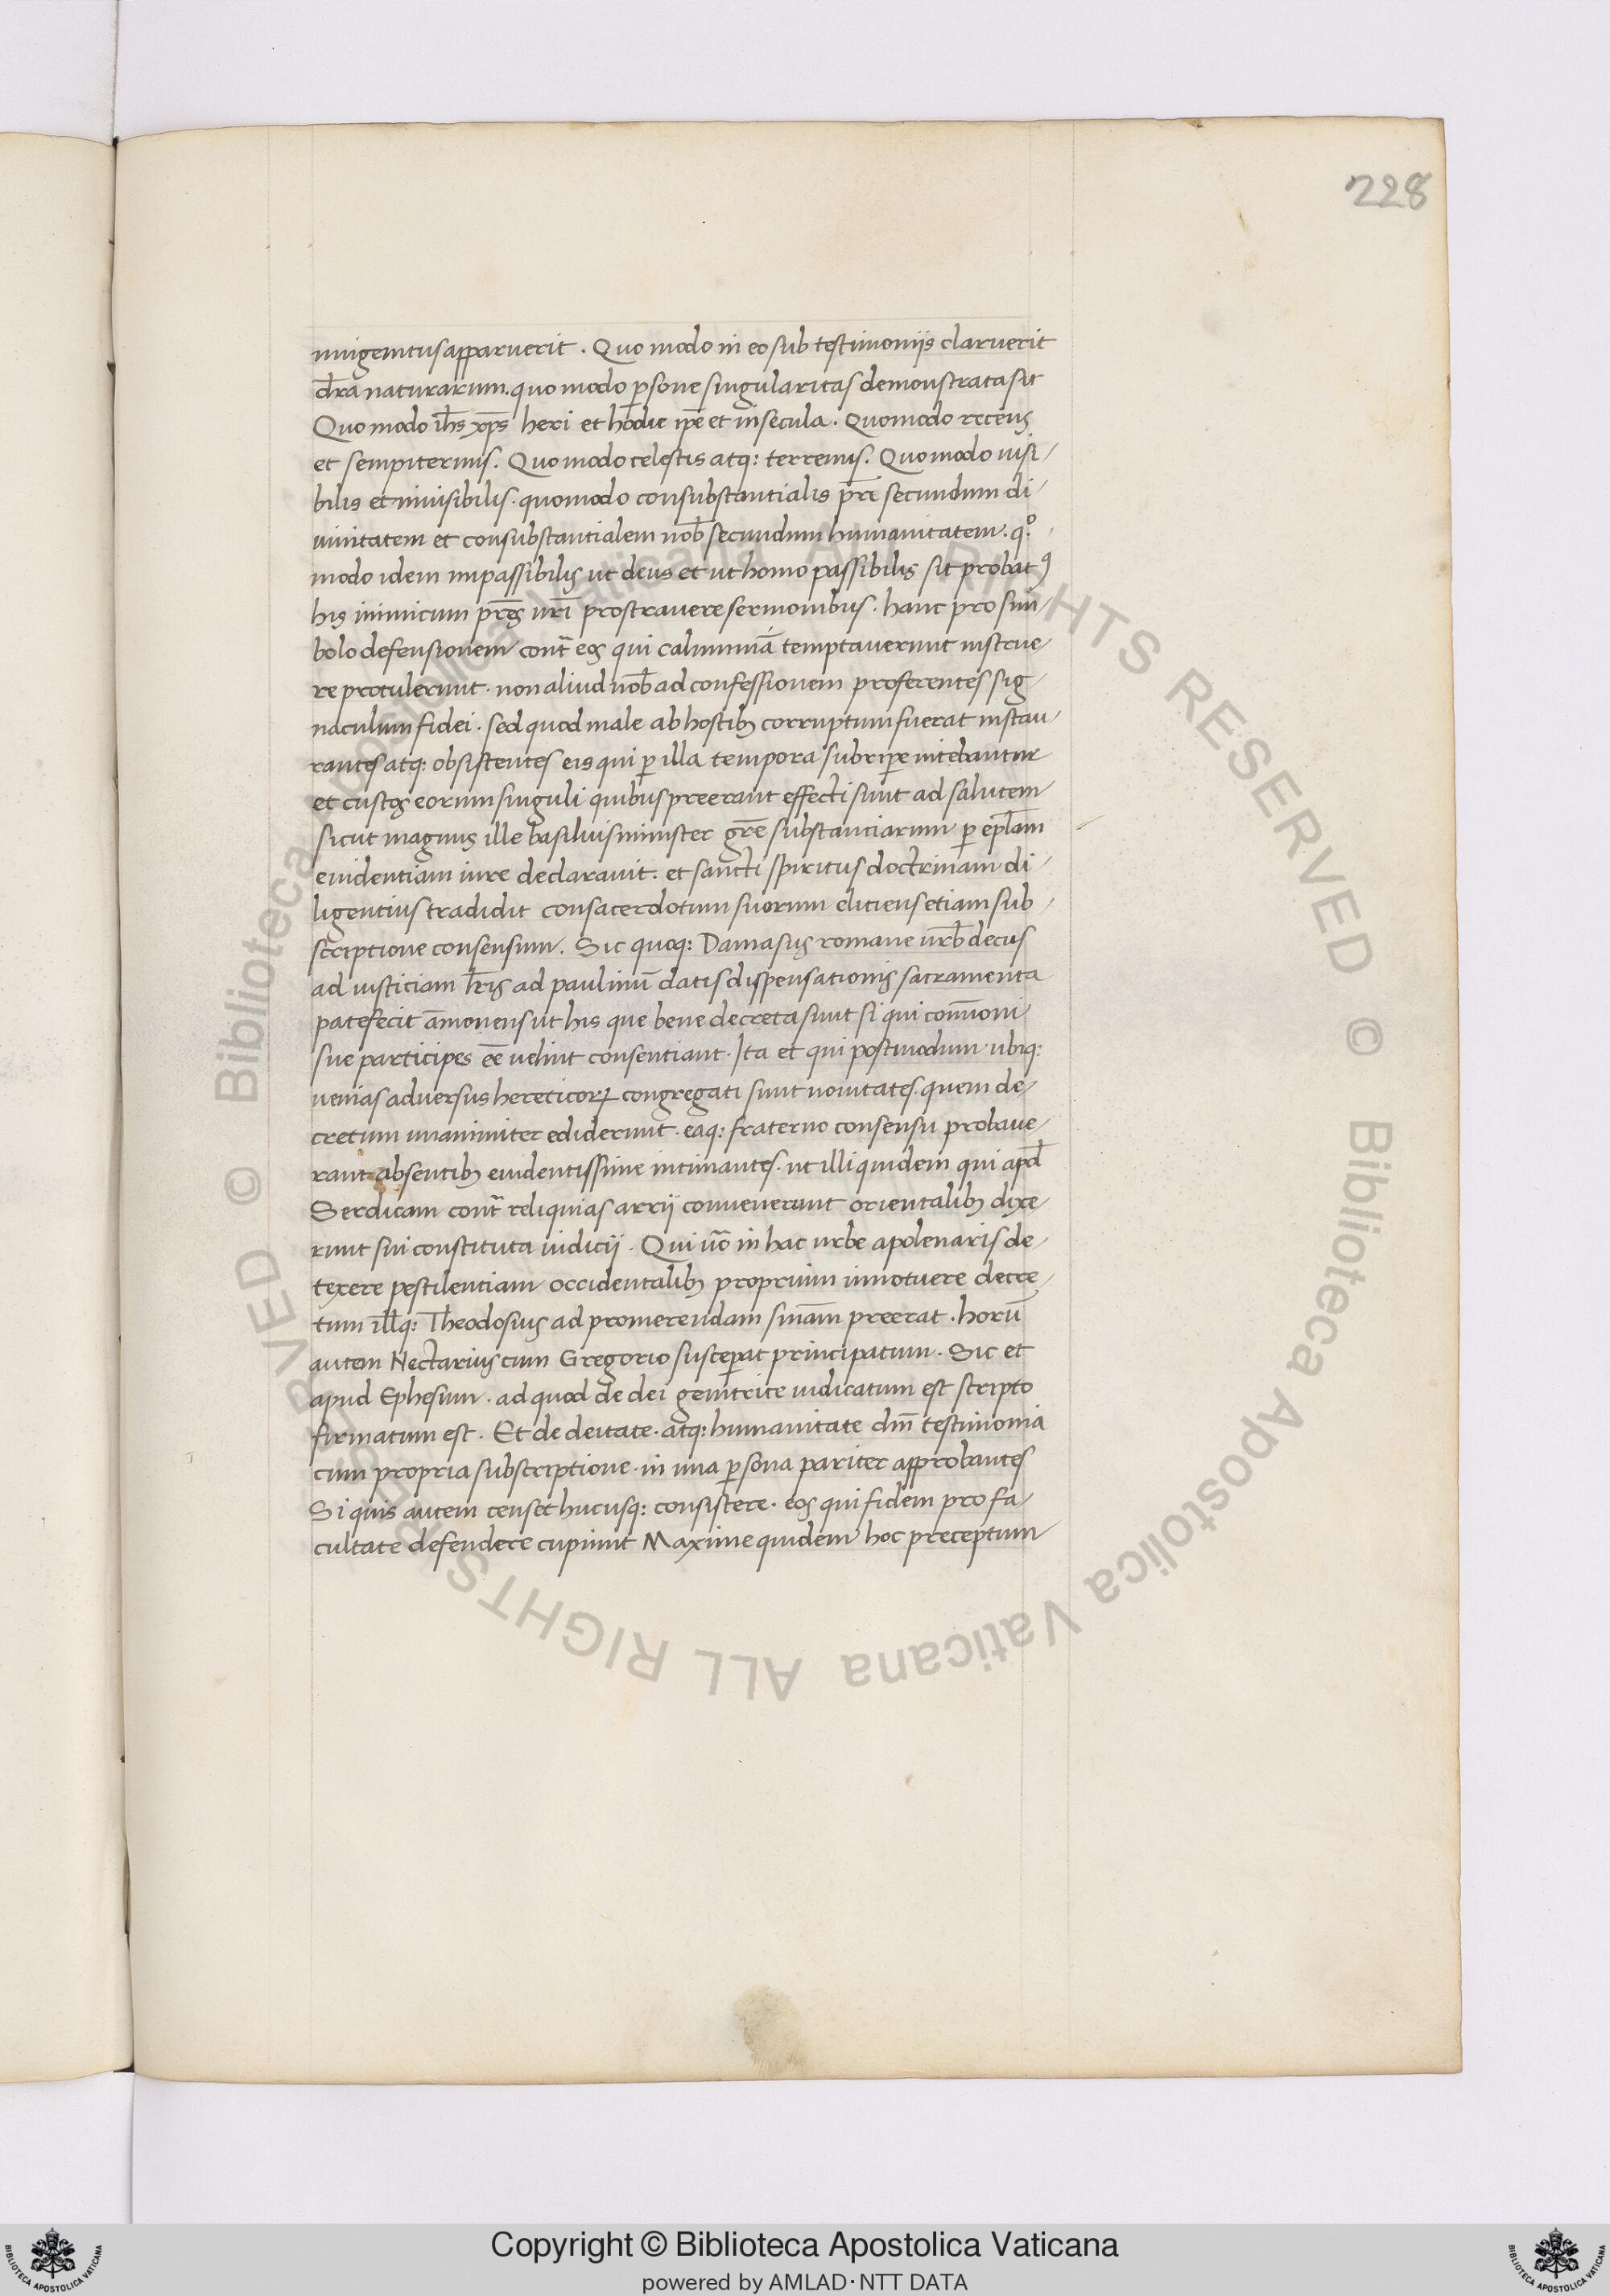 228
unigenitus apparuerit . Quo modo in eo sub testimoniis claruerit
dr̄a naturarum. quo modo p̲sone singularitas demonstrata sit
Quo modo ih̄s xp̄s heri et hodie ip̄e et in secula . Quomodo recens
et sempiternus . Quo modo celestis atq: terrenus . Quo modo uisi-
bilis et inuisibilis . quomodo consubstantialis pr̄i secundum di-
uinitatem et consubstantialem nob̄ secundum humanitatem . qº.
modo idem impassibilis ut deus et ut homo passibilis sit probatꝰ
his inimicum pr̄es nr̄i prostrauere sermonibus . hanc pro sim-
bolo defensionem cont̄ eos qui calumniā temptauerunt instrue-
re protulerunt . non aliud nob̄ ad confessionem proferentes sig-
naculum fidei . sed quod male ab hostibꝫ corruptum fuerat instau-
rantes atq: obsistentes eis qui ꝑ illa tempora subripe nitebantur
et custos eorum singuli quibus preerant effecti sunt ad salutem
sicut magnus ille basilius minister gr̄e substanciarum ꝑ epl̄am
euidentiam iure declarauit . et sancti spiritus doctrinam di-
ligentius tradidit consacerdotum suorum eliciens etiam sub-
scriptione consensum . Sic quoq: Damasus romane urb̄ decus
ad iusticiam lr̄is ad paulinū datis dispensationis sacramenta
patefecit āmonens ut his que bene decreta sunt si qui com̄oni-
sue participes eē uelint consentiant . Ita et qui postmodum ubiq:
uenias aduersus hereticorꝝ congregati sunt nouitates . quem de-
cretum unanimiter ediderunt . eaq: fraterno consensu probaue-
rant absentibꝫ euidentissime intimantes . ut illi quidem qui apd̄
Serdicam cont̄ reliquias arrii conuenerunt orientalibꝫ dixe-
runt sui constituta iudicii . Qui uō in hac urbe apolenaris de-
texere pestilentiam occidentalibꝫ proprium innotuere decre-
tum ill̄q: Theodosius ad promerendam sinām preerat . horū
autem Nectarius cum Gregorio susceꝑat principatum . Sic et
apud Ephesum . ad quod de dei genitrice iudicatum est scripto
firmatum est . Et de deitate . atq: humanitate dn̄i testimonia
cum propria subscriptione . in una ꝑsona pariter approbantes
Si quis autem censet hucusq: consistere . eos qui fidem pro fa-
cultate defendere cupiunt Maxime quidem hoc preceptum
© Biblioteca Apostolica Vaticana ALL RIGHTS RESERVED © Biblioteca Apostolica Vaticana ALL RIGHTS RESERVED
Copyright © Biblioteca Apostolica Vaticana
powered by AMLAD·NTT DATA
BIBLIOTECA APOSTOLICA VATICANA
BIBLIOTECA APOSTOLICA VATICANA